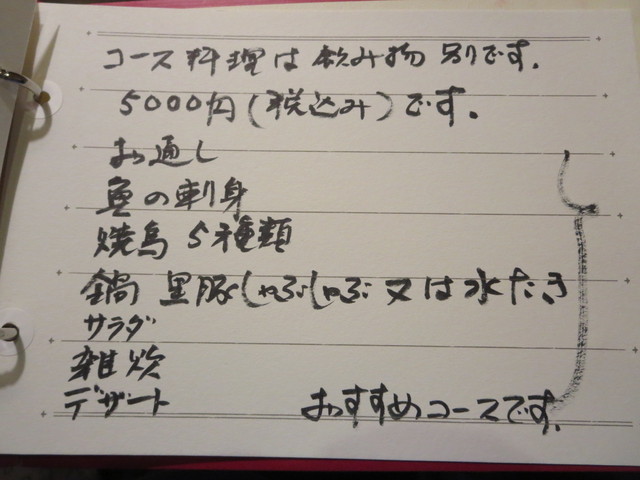 コース料理は飲み物別です。
5000円(税込み)です。
お通し
魚の刺身
焼鳥 5種類
鍋 黒豚しゃぶしゃぶ 又は水たき
サラダ
雑炊
デザート
おすすめコースです。